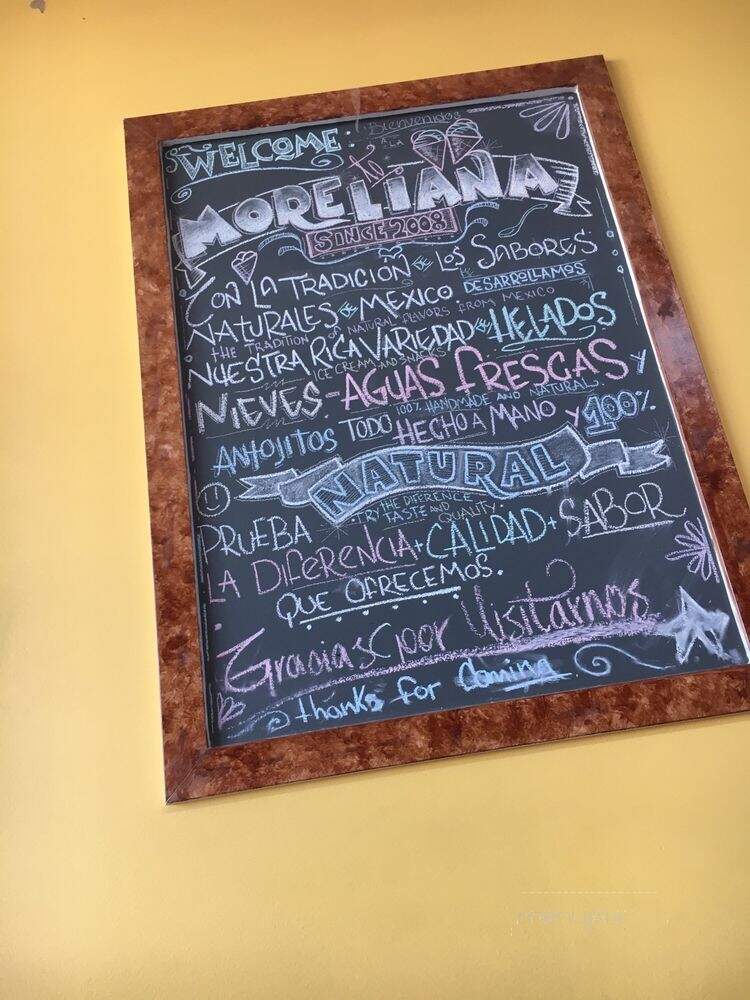 WELCOME Bienvenidos
A LA
MORELIANA
SINCE 2008
CON LA TRADICIÓN DE LOS SABORES
NATURALES DE MÉXICO. DESARROLLAMOS
THE TRADITION OF NATURAL FLAVORS FROM MEXICO
NUESTRA RICA VARIEDAD DE HELADOS
ICE CREAM AND SNACKS
NIEVES - AGUAS FRESCAS Y
100% HANDMADE AND NATURAL.
ANTOJITOS TODO HECHO A MANO Y 100%
NATURAL
TRY THE DIFERENCE
TASTE AND QUALITY.
PRUEBA
LA DIFERENCIA + CALIDAD + SABOR
QUE OFRECEMOS.
Gracias por Visitarnos
thanks for coming